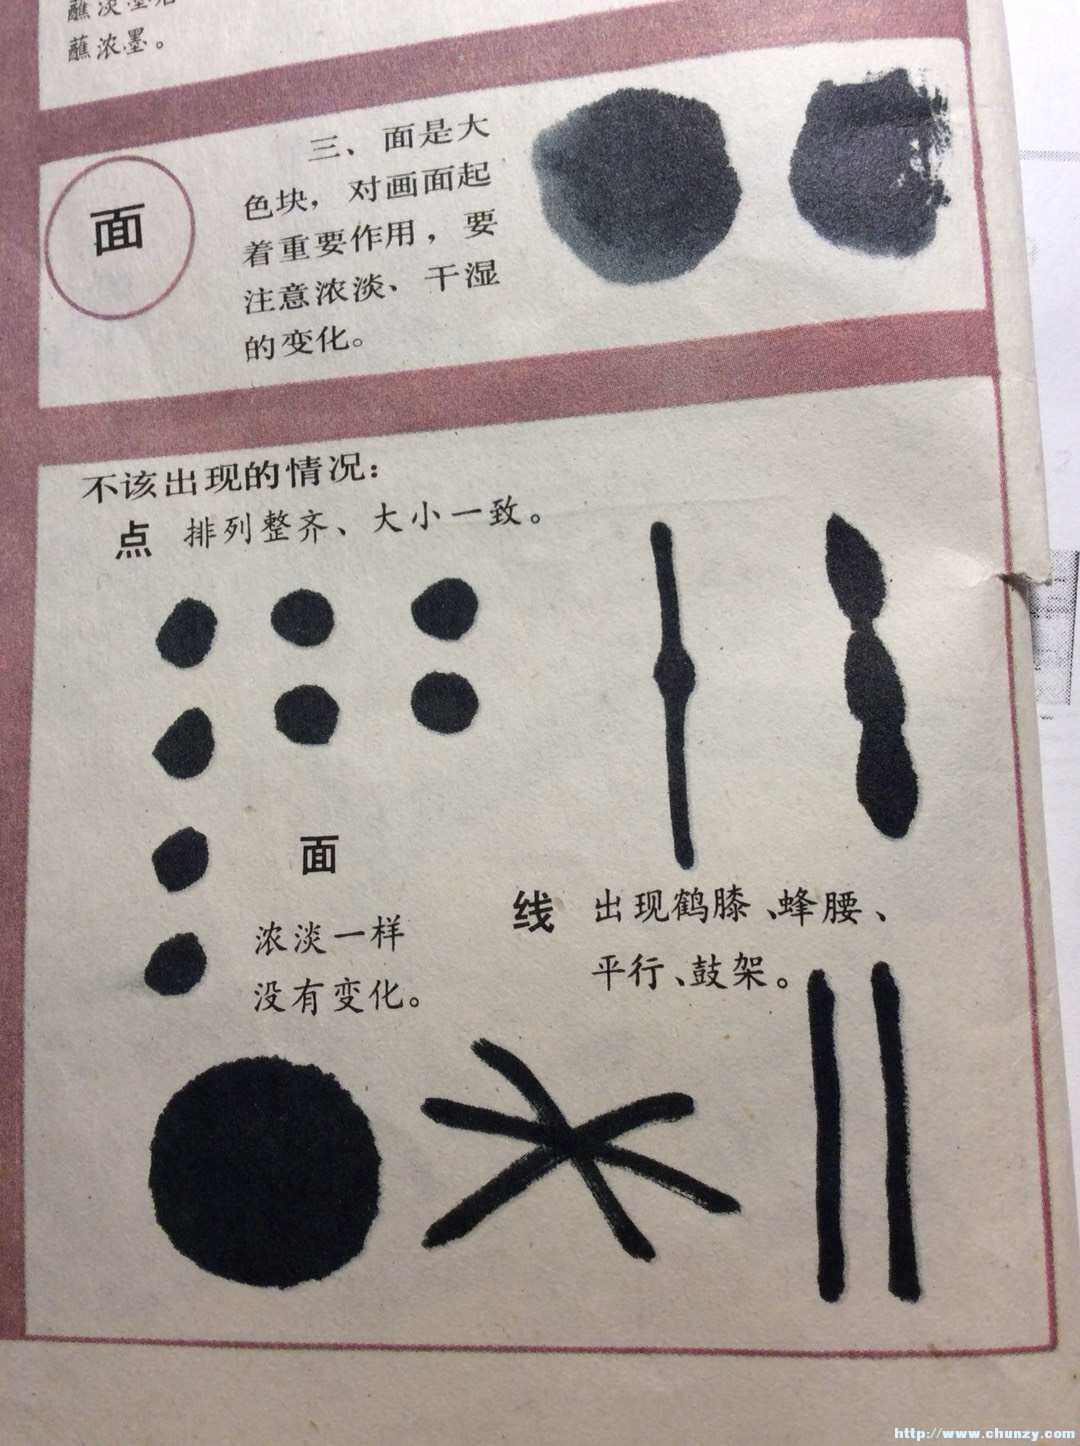 蘸淡墨后
蘸浓墨。
面
三、面是大
色块，对画面起
着重要作用，要
注意浓淡、干湿
的变化。
不该出现的情况：
点 排列整齐、大小一致。
面
浓淡一样
没有变化。
线 出现鹤膝、蜂腰、
平行、鼓架。
http://www.chunzy.com